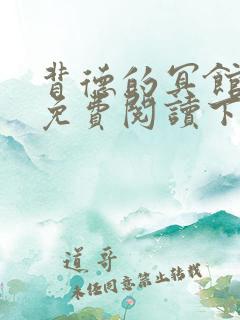 背德的冥館
免費閱讀下
道哥
未经同意禁止转载